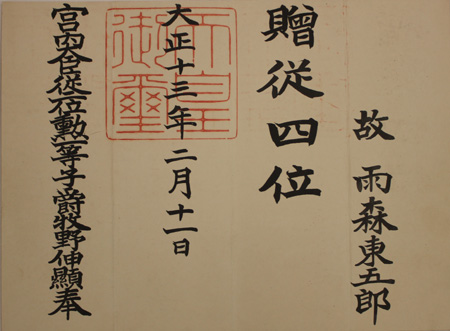 故 雨森東五郎
贈従四位
大正十三年二月十一日
天皇御璽
宮内大臣従二位勲一等子爵牧野伸顕奉